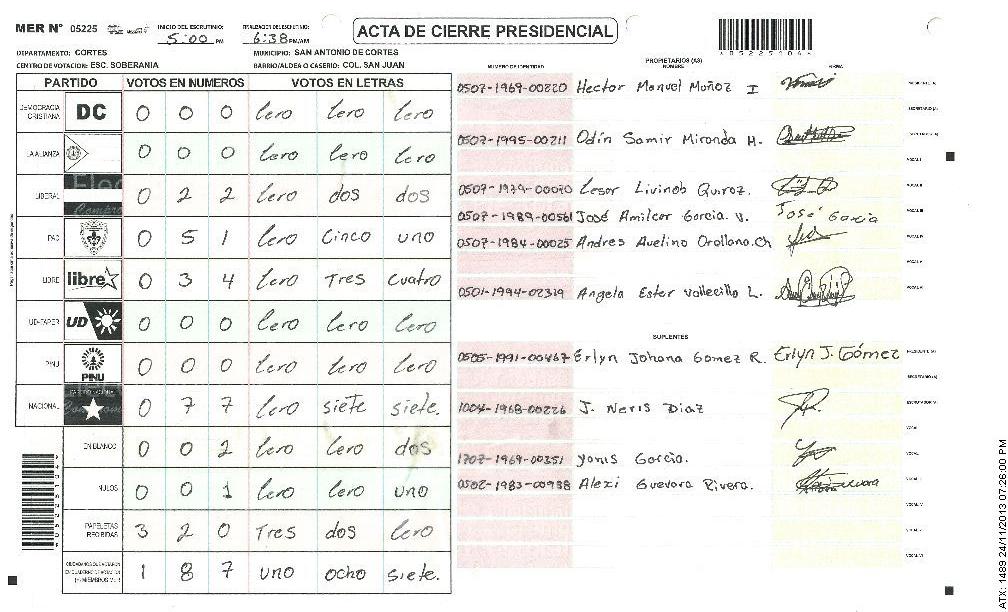 MER Nº 05225
INICIO DEL ESCRUTINIO: 5:00 PM
FINALIZACION DEL ESCRUTINIO: 6:38 PM/AM
ACTA DE CIERRE PRESIDENCIAL
DEPARTAMENTO: CORTES
MUNICIPIO: SAN ANTONIO DE CORTES
CENTRO DE VOTACION: ESC. SOBERANIA
BARRIO/ALDEA O CASERIO: COL. SAN JUAN
PARTIDO VOTOS EN NUMEROS VOTOS EN LETRAS
DEMOCRACIA CRISTIANA DC 0 0 0 Cero Cero Cero
LA ALIANZA 0 0 0 Cero Cero Cero
LIBERAL 0 2 2 Cero dos dos
PAC 0 5 1 Cero Cinco uno
LIBRE libre 0 3 4 Cero Tres Cuatro
UD-FAPER UD 0 0 0 Cero Cero Cero
PINU PINU 0 0 0 Cero Cero Cero
NACIONAL 0 7 7 Cero siete siete.
EN BLANCO 0 0 2 Cero Cero dos
NULOS 0 0 1 Cero Cero uno
PAPELETAS RECIBIDAS 3 2 0 Tres dos Cero
1 8 7 uno ocho siete.
NUMERO DE IDENTIDAD
PROPIETARIOS (AS)
NOMBRE
FIRMA
0507-1969-00220 Hector Manuel Muñoz I
0507-1995-00211 Odin Samir Miranda M.
0507-1979-00070 Cesar Quiroz.
0507-1989-00561 José Amilcar Garcia V. José Garcia
0507-1984-00025 Andres Avelino Orellana.Ch
0501-1994-02319 Angela Ester Vallecillo L.
SUPLENTES
0505-1991-00467 Erlyn Johana Gomez R. Erlyn J. Gómez
1004-1968-00226 J. Neris Diaz
1707-1969-00351 Yanis Garcia.
0502-1983-00988 Alexi Guevara Rivera.
ATX: 1489 24/11/2013 07:26:00 PM